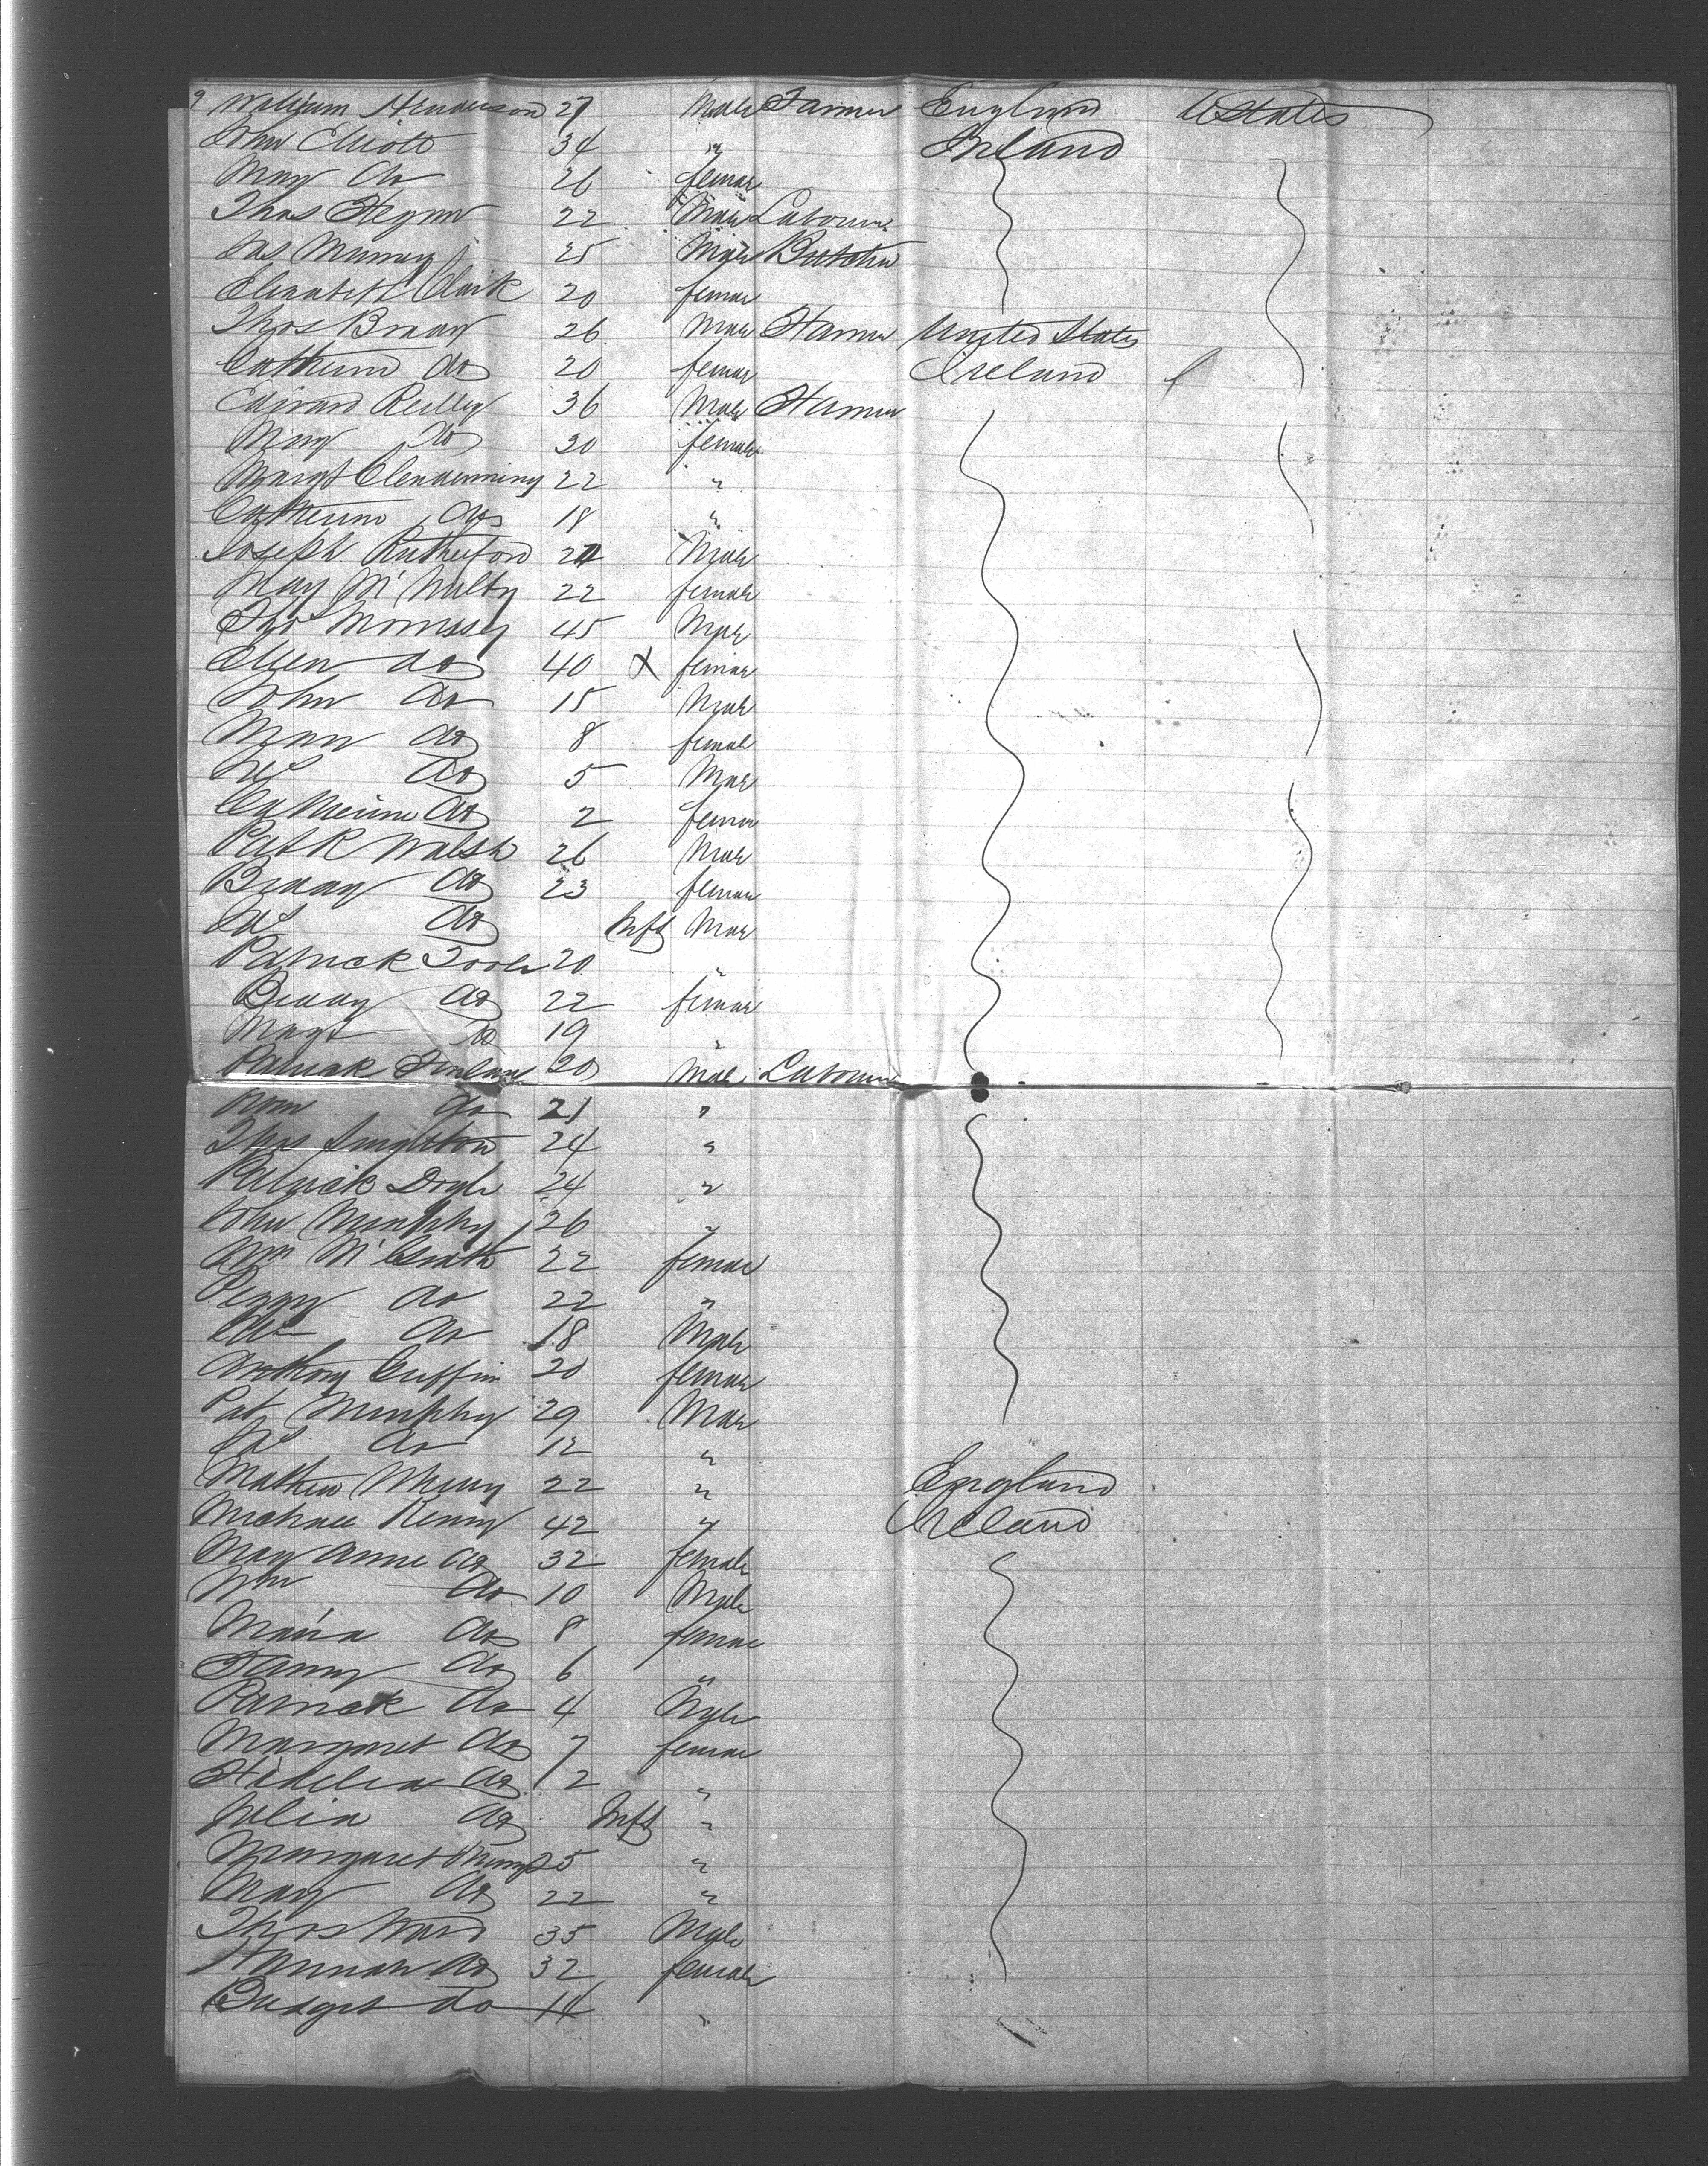 9 William Henderson 27 Male Farmer England UStates
John Elliott 34 " Ireland
Mary do 26 female
Thos 22 Male Labourer
Jas Murray 25 Male Butcher
Elizabeth Clark 20 female
Thos Brady 26 Male Farmer United States
Catherine do 20 female Ireland
Edward Reilley 36 Male Farmer
Mary do 30 female
Margt Clendenning 22 "
Catherine do 18 "
Joseph Rutherford Male
Mary McNulty 22 female
Thos Morrissey 45 Male
Ellen do 40 X female
John do 15 Male
Mary do 8 female
do 5 Male
Catherine do 2 female
Patk Walsh 26 Male
Biddy do 23 female
do Inft Male
Patrick Toole 20 "
Biddy do 22 female
Margt do 19 "
Patrick 20 Male Labourer
do 21 "
Thos Singleton 24 "
Patrick Doyle 24 "
John Murphy 26 "
McGrath 22 female
Peggy do 22 "
do 18 Male
Anthony Griffin 20 female
Pat Murphy 29 Male
do 12 "
Mathew 22 " England
Michael Kenny 42 " Ireland
Mary Anne do 32 female
Wm do 10 Male
Maria do 8 female
Fanny do 6 "
Patrick do 4 Male
Margaret do 7 female
Fidelia do 2 "
Julia do Inft "
Margaret 25 "
Mary do 22 "
Thos Ward 35 Male
Hannah do 32 female
Bridget do 14 "